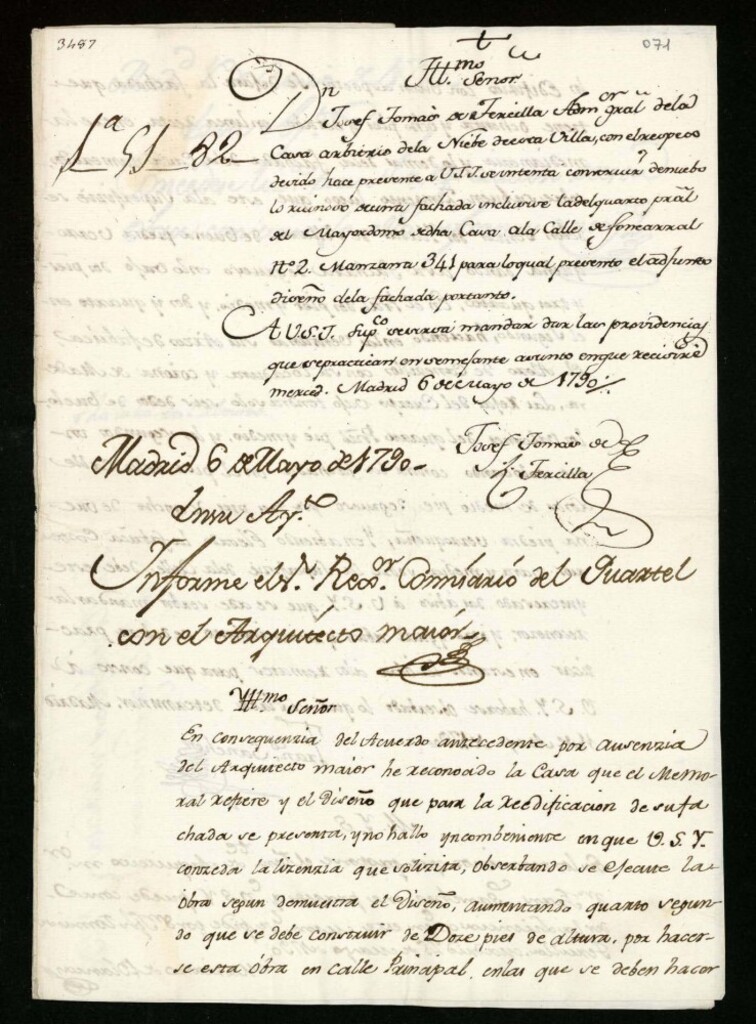 3487
071
Yll.mo Señor
Dn Josef Tomas de Tercilla Adm.or gral. dela
Casa arbitrio dela Niebe de esta Villa, con el respeto
devido hace presente a V.S.I. se intenta construir de nuebo
lo ruinoso de una fachada inclusive la del quarto pral
del Mayordomo de dha Casa, a la Calle de foncarral
Nº 2. Manzana 341 para lo qual presento el adjunto
diseño dela fachada portanto.
A V.S.I. Sup.co se sirva mandar dar las providencias
que se practican en semejante asunto en que recivire
merced. Madrid 6 de Mayo de 1790
1ª 51 82
Josef Tomas de
Tercilla
Madrid 6 de Mayo de 1790
En su Ay.to
Informe el S.r Rex.or Comisario del Quartel
con el Arquitecto maior
Yll.mo Señor
En consequenzia del Acuerdo antecedente por ausenzia
del Arquitecto maior he reconocido la Casa que el Memo-
rial refiere y el diseño que para la reedificacion de su fa
chada se presenta, y no hallo yncombeniente en que V.S.Y.
conzeda la lizenzia que solizita, Obserbando se ejecute la
Obra segun demuestra el Diseño, aumentando quarto segun-
do que se debe construir de Doze pies de altura, por hacer-
se esta Obra en Calle Principal, en las que se deben hacer